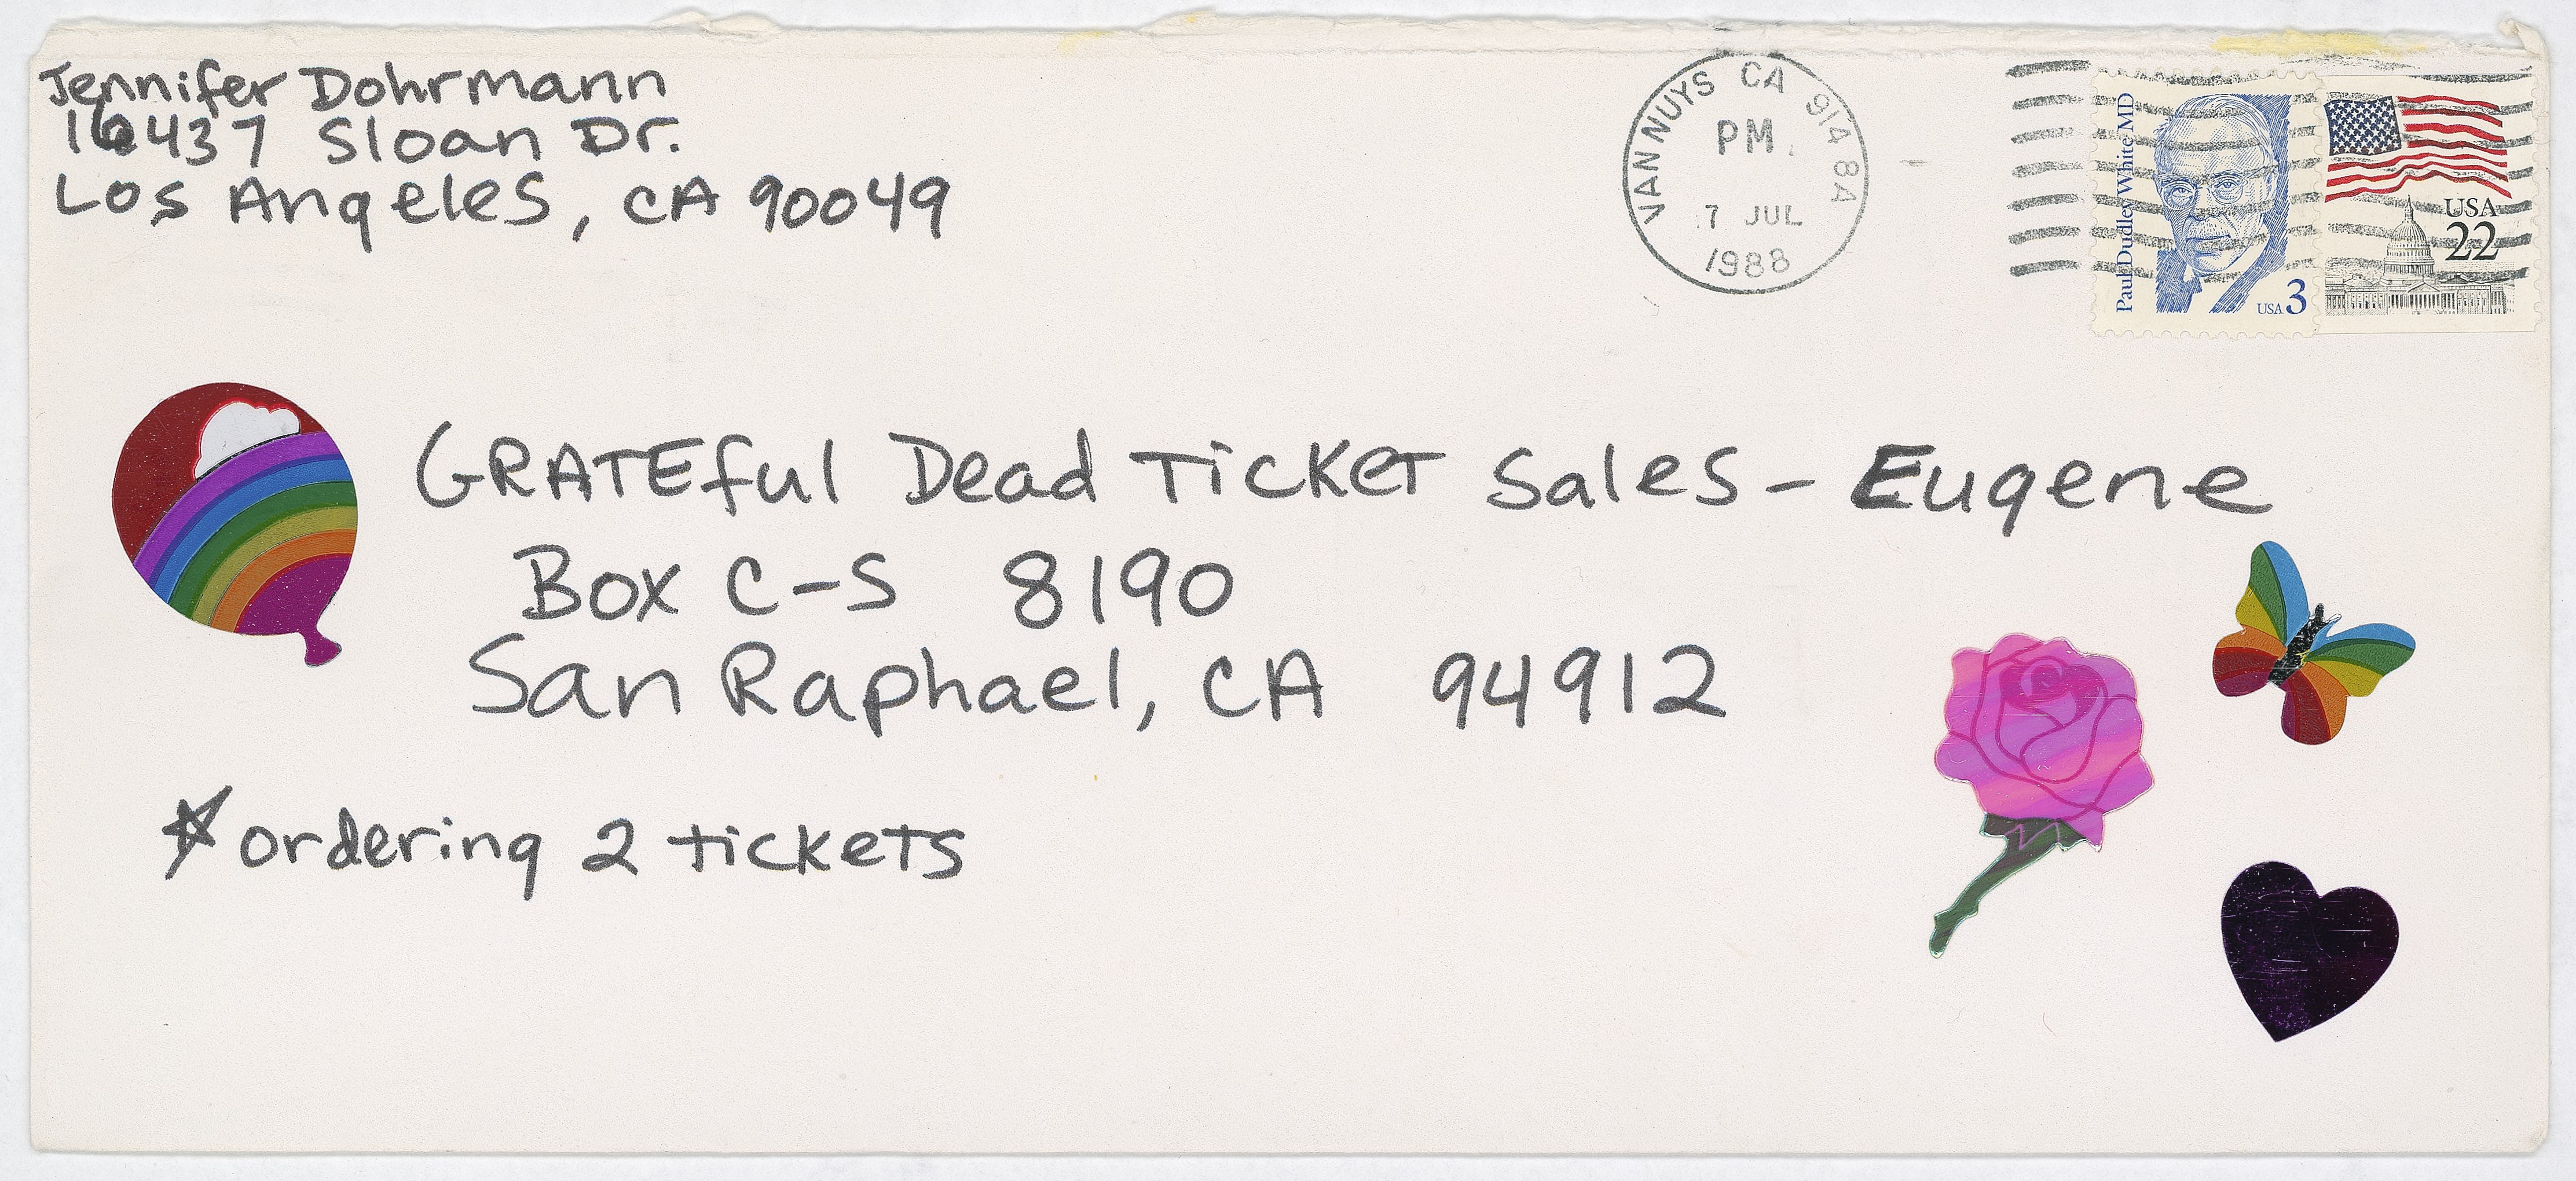 Jennifer Dohrmann
16437 Sloan Dr.
Los Angeles, CA 90049
VAN NUYS CA 914 8A
PM
7 JUL
1988
Paul Dudley White MD
USA 3
USA
22
GRATEful Dead TickeT Sales - Eugene
Box C-S 8190
San Raphael, CA 94912
☆ ordering 2 tickets